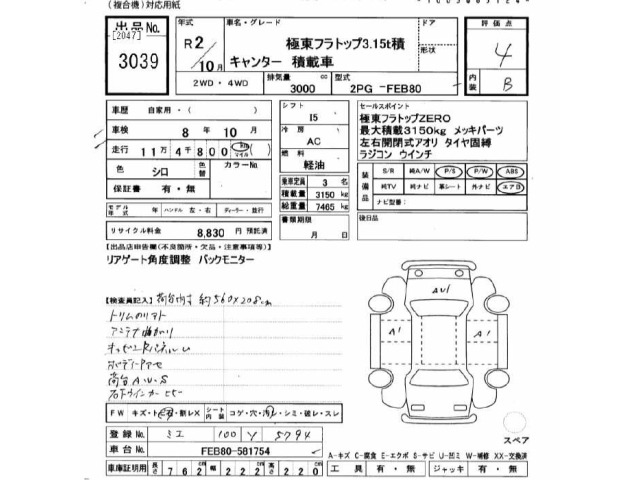 (複合機)対応用紙
出品No. [2047] 3039
年式 R2/10月
車名・グレード 極東フラトップ3.15t積
キャンター 積載車
ドア 形状
評価点 4
内装 B
2WD・4WD 排気量 3000 cc 型式 2PG -FEB80
車歴 自家用・( )
車検 8年 10月
走行 11万 4千 800 km マイル
色 シロ 色替 カラーNo.
保証書 有・無
シフト I5
冷房 AC
燃料 軽油
乗車定員 3 名
積載量 3150 kg
総重量 7465 kg
書類期限 月 日
セールスポイント
極東フラトップZERO
最大積載3150kg メッキパーツ
左右開閉式アオリ タイヤ固縛
ラジコン ウインチ
装備品 S/R 純A/W P/S P/W ABS
純TV 純ナビ 革シート 外ナビ エアB
ナビ型番:
後日品
モデル年式 年 ハンドル 左・右 ディーラー・並行
リサイクル料金 8,830 円 預託済
【出品店申告欄(不良箇所・欠品・注意事項等)】
リアゲート角度調整 バックモニター
【検査員記入】 荷台内寸 約560×208cm
トリムのリヲト
アンテナ曲がり
荷台 A.U.S
AU1
A1 A1
FW キズ・ト・割レX シート内装 コゲ・穴・汚レ・シミ・破レ・スレ
登録No. ミエ 100 Y 5794
車台No. FEB80-581754
スペア
A-キズ C-腐食 E-エクボ S-サビ U-凹ミ W-補修 XX-交換済
車庫証明用 長さ 762 幅 222 高さ 220
工具 有・無 ジャッキ 有・無